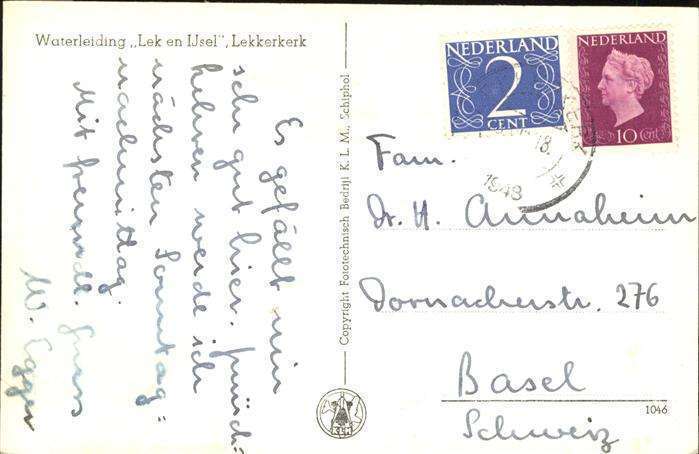 Waterleiding „Lek en IJsel", Lekkerkerk
Es gefällt mir
sehr gut hier.
kehren werde ich
nächsten Sonntag=
nachmittag.
Mit freundl. Gruss
W. Egger
Copyright Fototechnisch Bedrijf K. L. M., Schiphol
KLM
NEDERLAND
2
CENT
NEDERLAND
10 Cent
18.
1948
Fam.
Dr. H. Annaheim
Dornacherstr. 276
Basel
Schweiz
1046